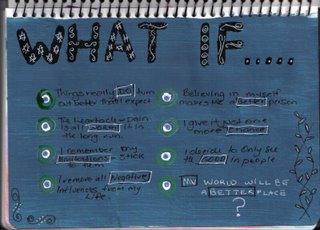 WHAT IF.....
Things really DO turn
out better than I expect
The heartache + pain
is all worth it in
the long run.
I remember my
limitations - stick
to them
I remove all Negative
influences from my
life
Believing in myself
makes me a better person
I give it just one
more chance
I decide to only see
the GOOD in people
MY WORLD WILL BE
A BETTER PLACE
?